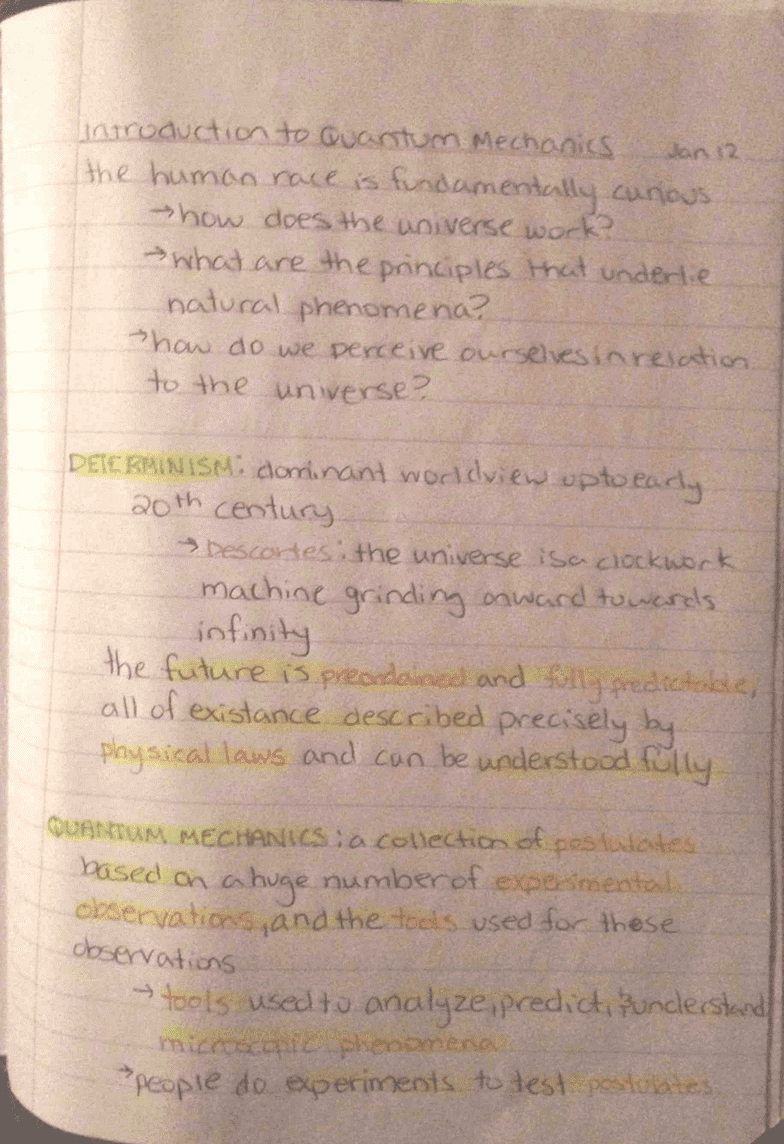 Introduction to Quantum Mechanics Jan 12
the human race is fundamentally curious
→how does the universe work?
→what are the principles that underlie
natural phenomena?
→how do we perceive ourselves in relation
to the universe?
DETERMINISM: dominant worldview up to early
20th century
→Descartes: the universe is a clockwork
machine grinding onward towards
infinity
the future is preordained and fully predictable,
all of existance described precisely by
physical laws and can be understood fully
QUANTUM MECHANICS: a collection of postulates
based on a huge number of experimental
observations, and the tools used for these
observations
→tools used to analyze, predict, & understand
microscopic phenomena
→people do experiments to test postulates